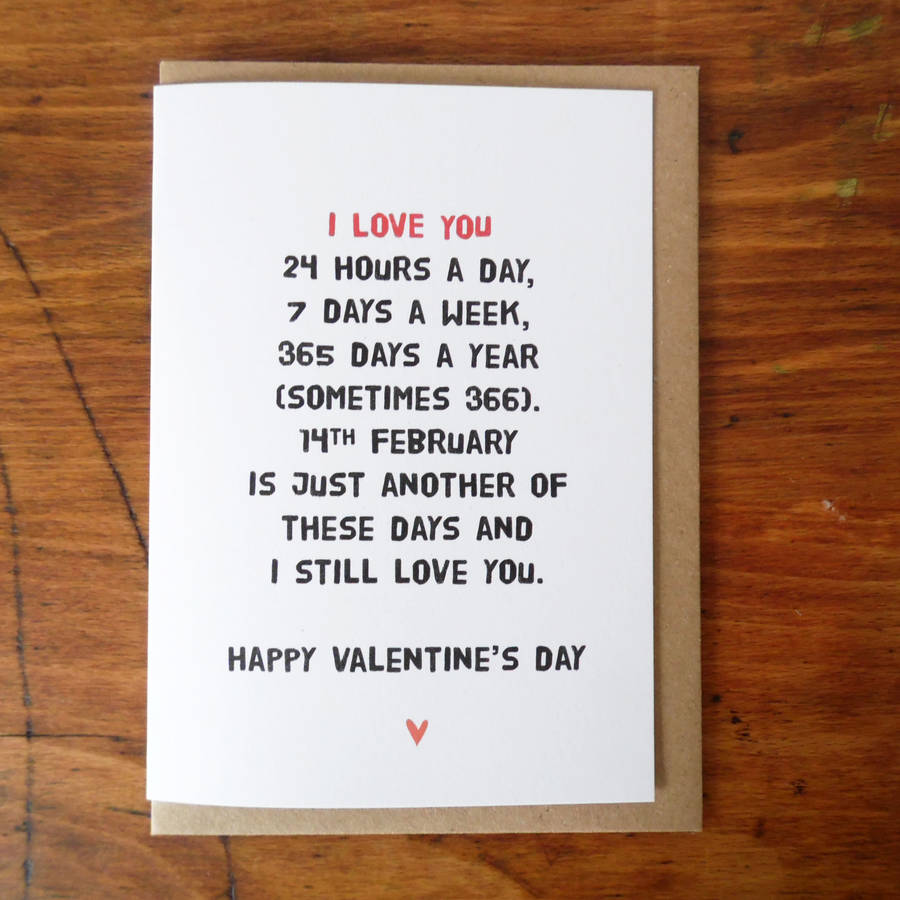 I LOVE YOU
24 HOURS A DAY,
7 DAYS A WEEK,
365 DAYS A YEAR
(SOMETIMES 366).
14TH FEBRUARY
IS JUST ANOTHER OF
THESE DAYS AND
I STILL LOVE YOU.
HAPPY VALENTINE'S DAY